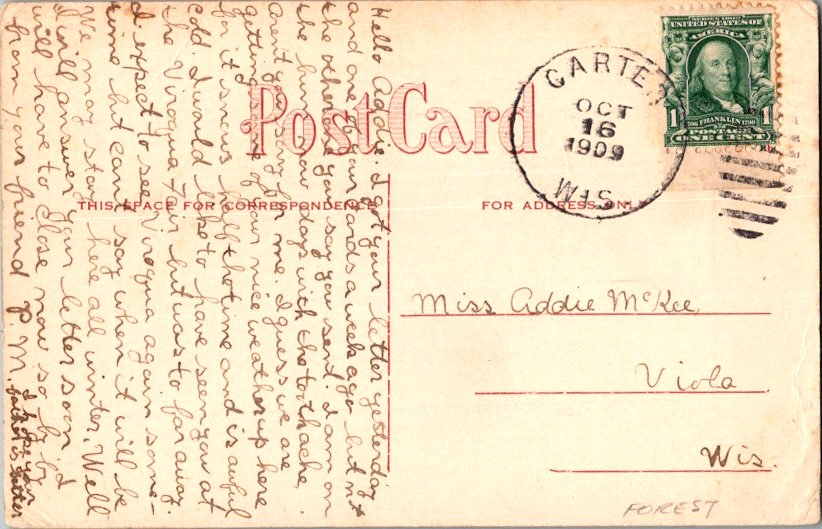 Post Card
THIS SPACE FOR CORRESPONDENCE
FOR ADDRESS ONLY
CARTER
OCT
16
1909
WIS
SERIES 1902
UNITED STATES OF
AMERICA
1
1
FRANKLIN
POSTAGE
ONE CENT
Hello Addie. I got your letter yesterday
and one of your cards a week ago but not
the other one you say you sent. I am on
the bum now days with the toothache,
Arent you sorry for me. I guess we are
getting some of your nice weather up here
for it snows half the time and is awful
cold. I would like to have seen you at
the Viroqua fair but was to far away.
I expect to see Viroqua again some-
time but cant say when it will be
We may stay here all winter. Well
I will answer your letter soon I
will have to close now so by by
from your friend P. M.
I hope your
father is better
Miss Addie McKee,
Viola
Wis.
FOREST